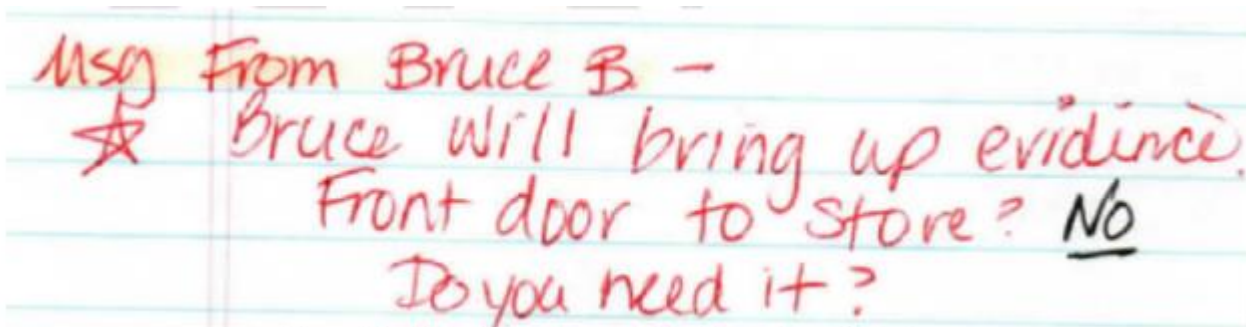 Msg From Bruce B. -
☆ Bruce will bring up evidince.
Front door to store? No
Do you need it?